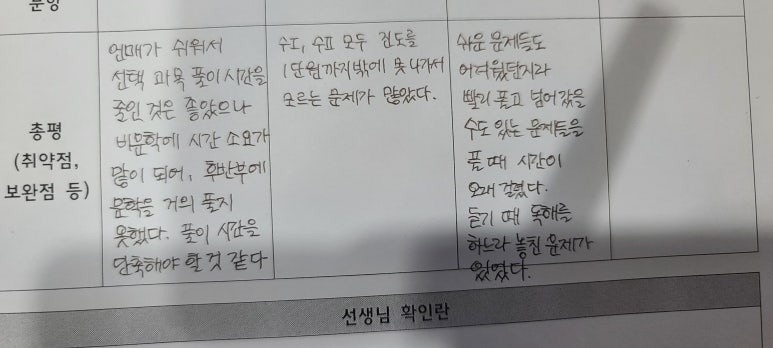 분량
총평
(취약점,
보완점 등)
언매가 쉬워서
선택 과목 풀이 시간을
줄인 것은 좋았으나
비문학에 시간 소요가
많이 되어, 후반부에
문학을 거의 풀지
못했다. 풀이 시간을
단축해야 할 것 같다
수I, 수II 모두 진도를
1단원까지밖에 못 나가서
모르는 문제가 많았다.
쉬운 문제들도
어려웠던지라
빨리 풀고 넘어갔을
수도 있는 문제들을
풀 때 시간이
오래 걸렸다.
듣기 때 독해를
하느라 놓친 문제가
있었다.
선생님 확인란